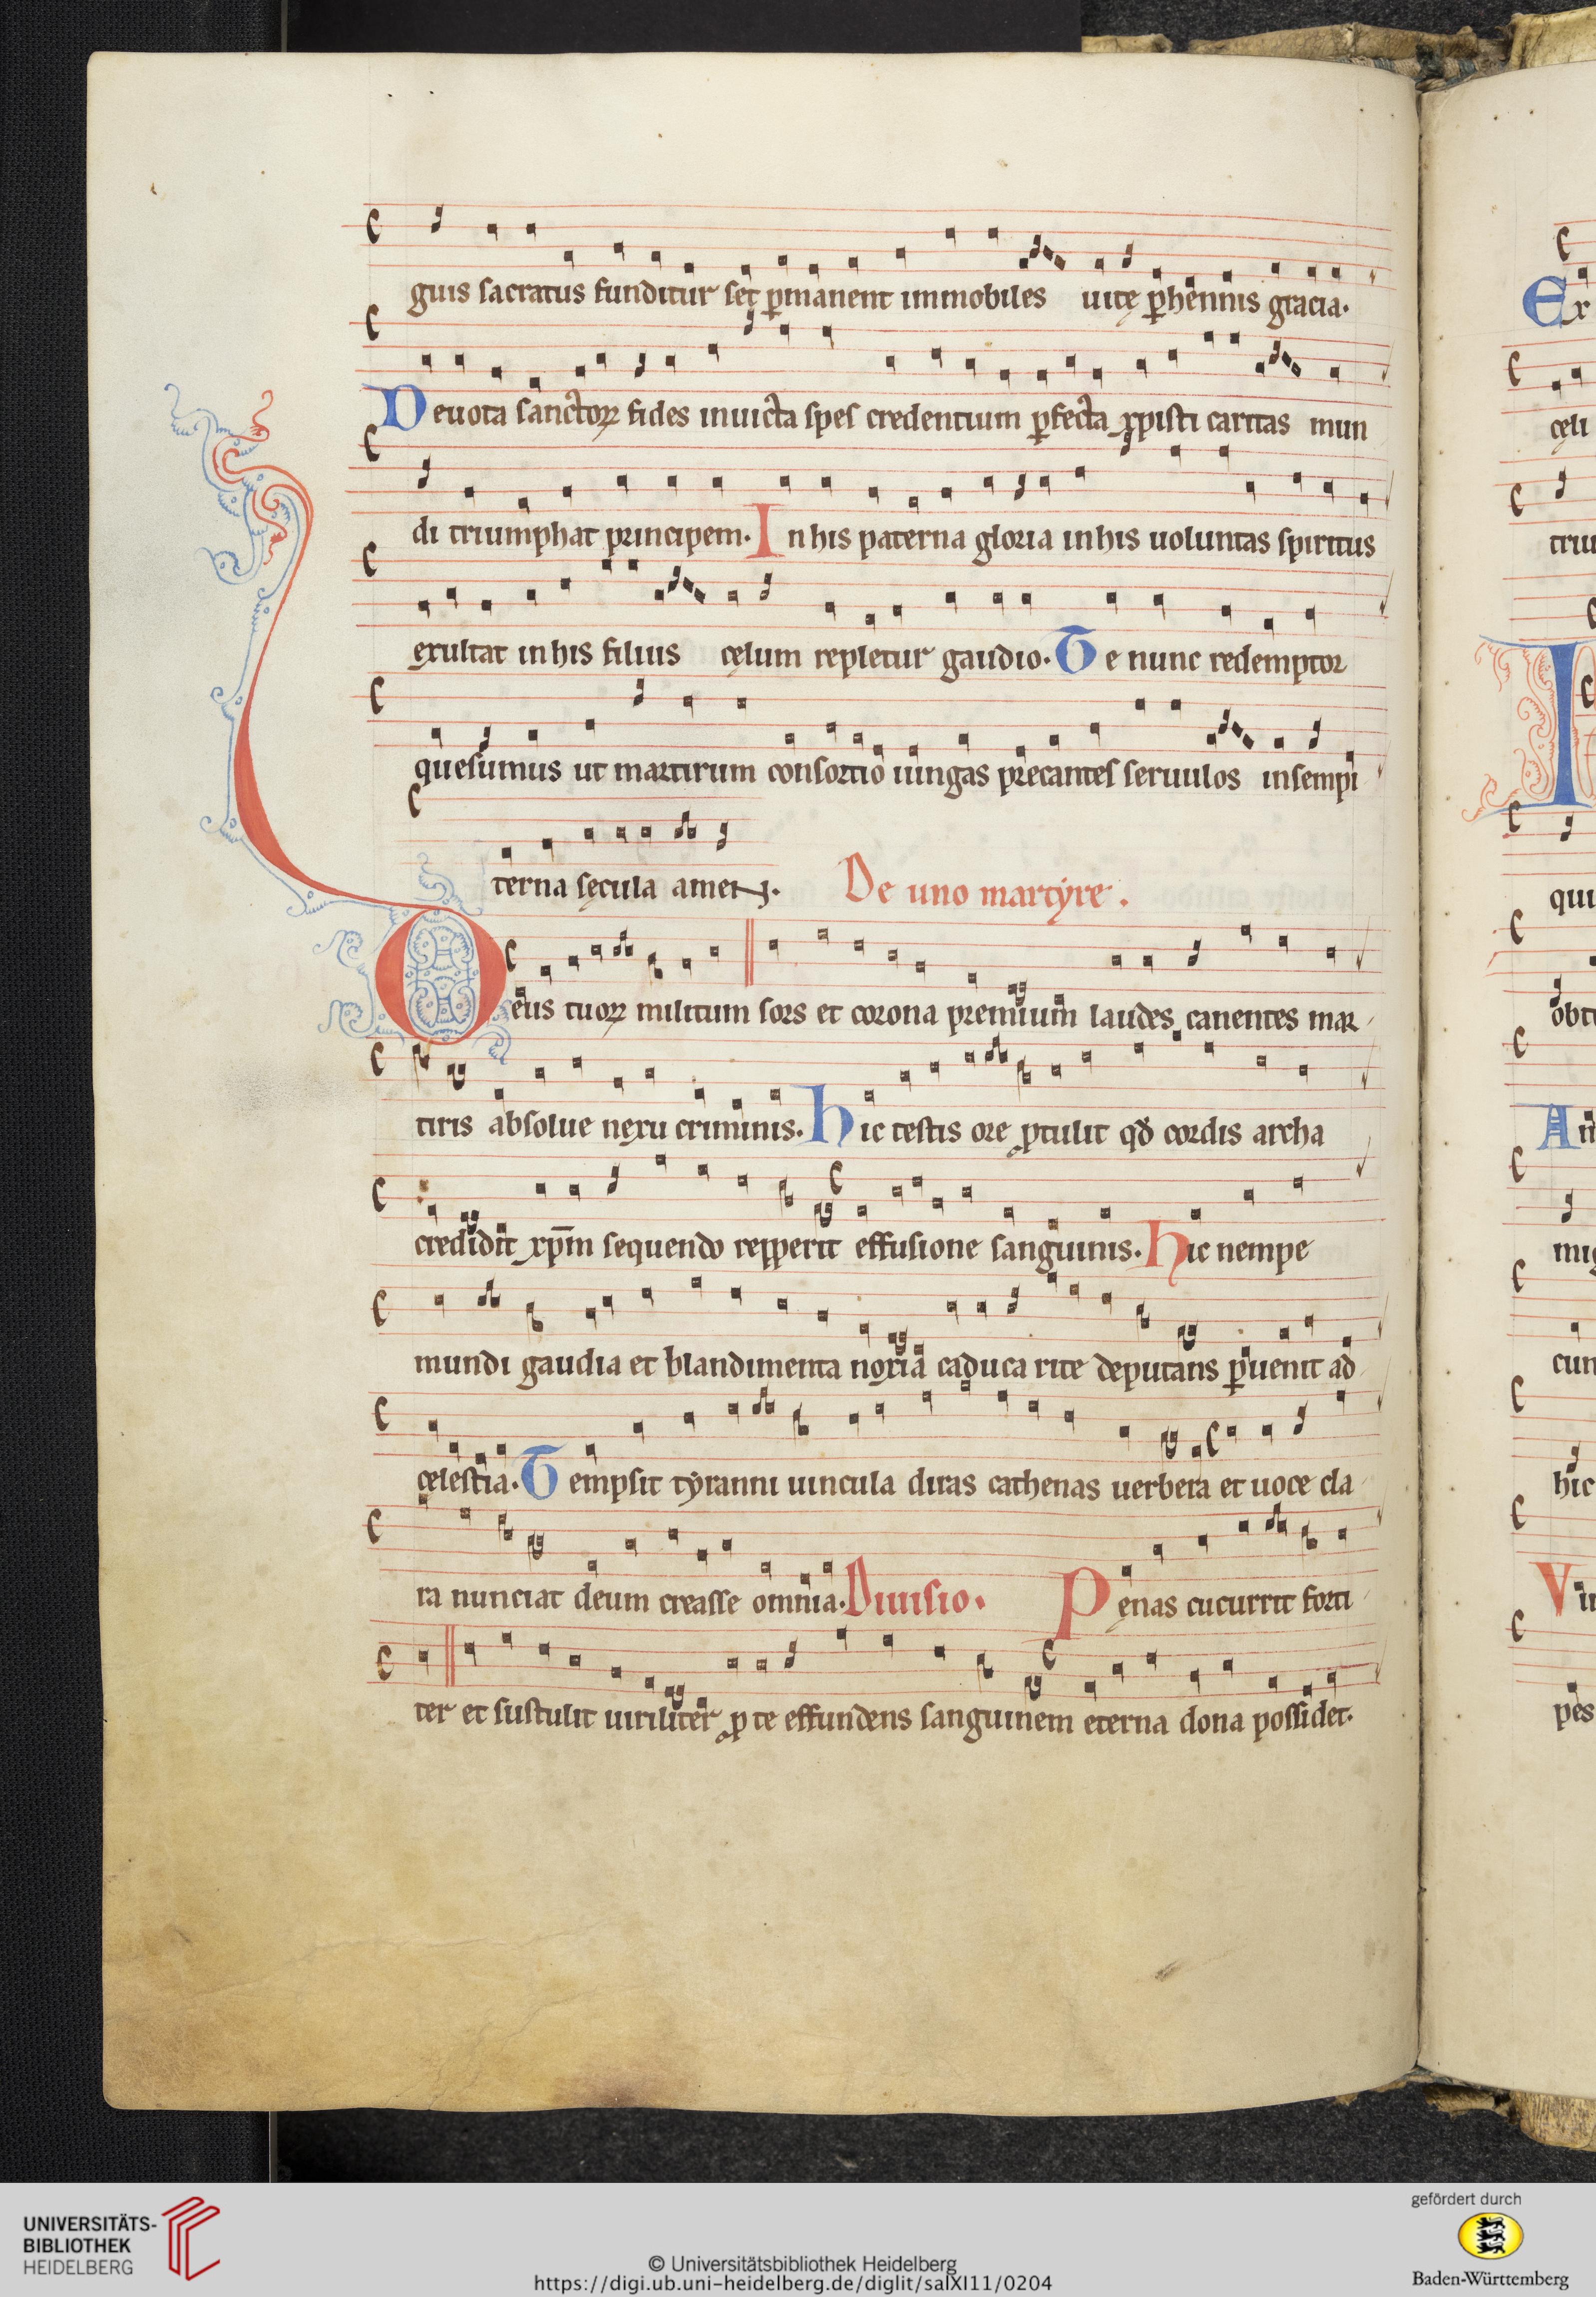 guis sacratus funditur set ꝑmanent immobiles uitę ꝑhennis gracia.
Deuota sanctoꝝ fides inuicta spes credentium ꝑfecta xpisti caritas mun
di triumphat principem. In his paterna gloria in his uoluntas spiritus
exultat in his filius cęlum repletur gaudio. Te nunc redemptor
quesumus ut martirum consortio iungas precantes seruulos in sempi
terna sęcula amen.
De uno martyre.
Deus tuoꝝ militum sors et corona premium laudes canentes mar
tiris absolue nexu criminis. Hic testis ore ꝓtulit qđ cordis archa
credidit xp̄m sequendo repperit effusione sanguinis. Hic nempe
mundi gaudia et blandimenta noxia caduca rite deputans ꝑuenit ad
celestia. Tempsit tyranni uincula diras cathenas uerbera et uoce cla
ra nunciat deum creasse omnia. Diuisio. Penas cucurrit forti
ter et sustulit uiriliter ꝓ te effundens sanguinem eterna dona possidet.
Ex
cęli
triu
qui
obt
An
mig
cun
hic
Vi
pes
UNIVERSITÄTS-
BIBLIOTHEK
HEIDELBERG
© Universitätsbibliothek Heidelberg
https://digi.ub.uni-heidelberg.de/diglit/salXI11/0204
gefördert durch
Baden-Württemberg